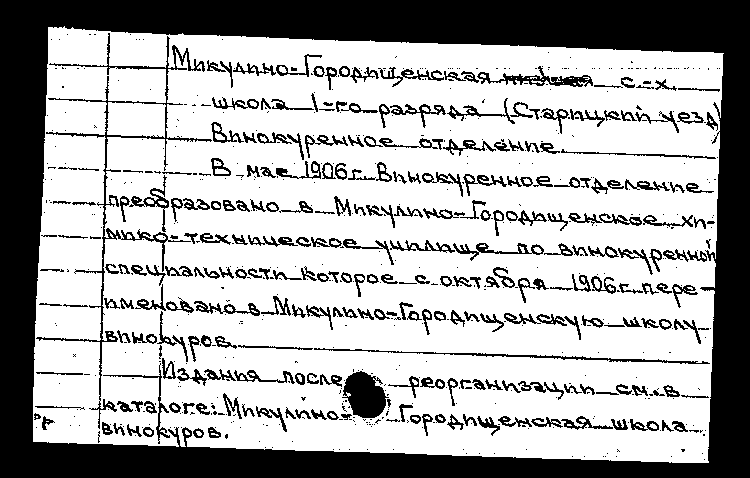 Микулино-Городищенская с.-х.
школа 1-го разряда (Старицкий уезд)
Винокуренное отделение.
В мае 1906г. Винокуренное отделение
преобразовано в Микулино-Городищенское хи-
мико-техническое училище по винокуренной
специальности которое с октября 1906г. пере-
именовано в Микулино-Городищенскую школу
винокуров.
Издания после реорганизации см. в
каталоге: Микулино-Городищенская школа
винокуров.